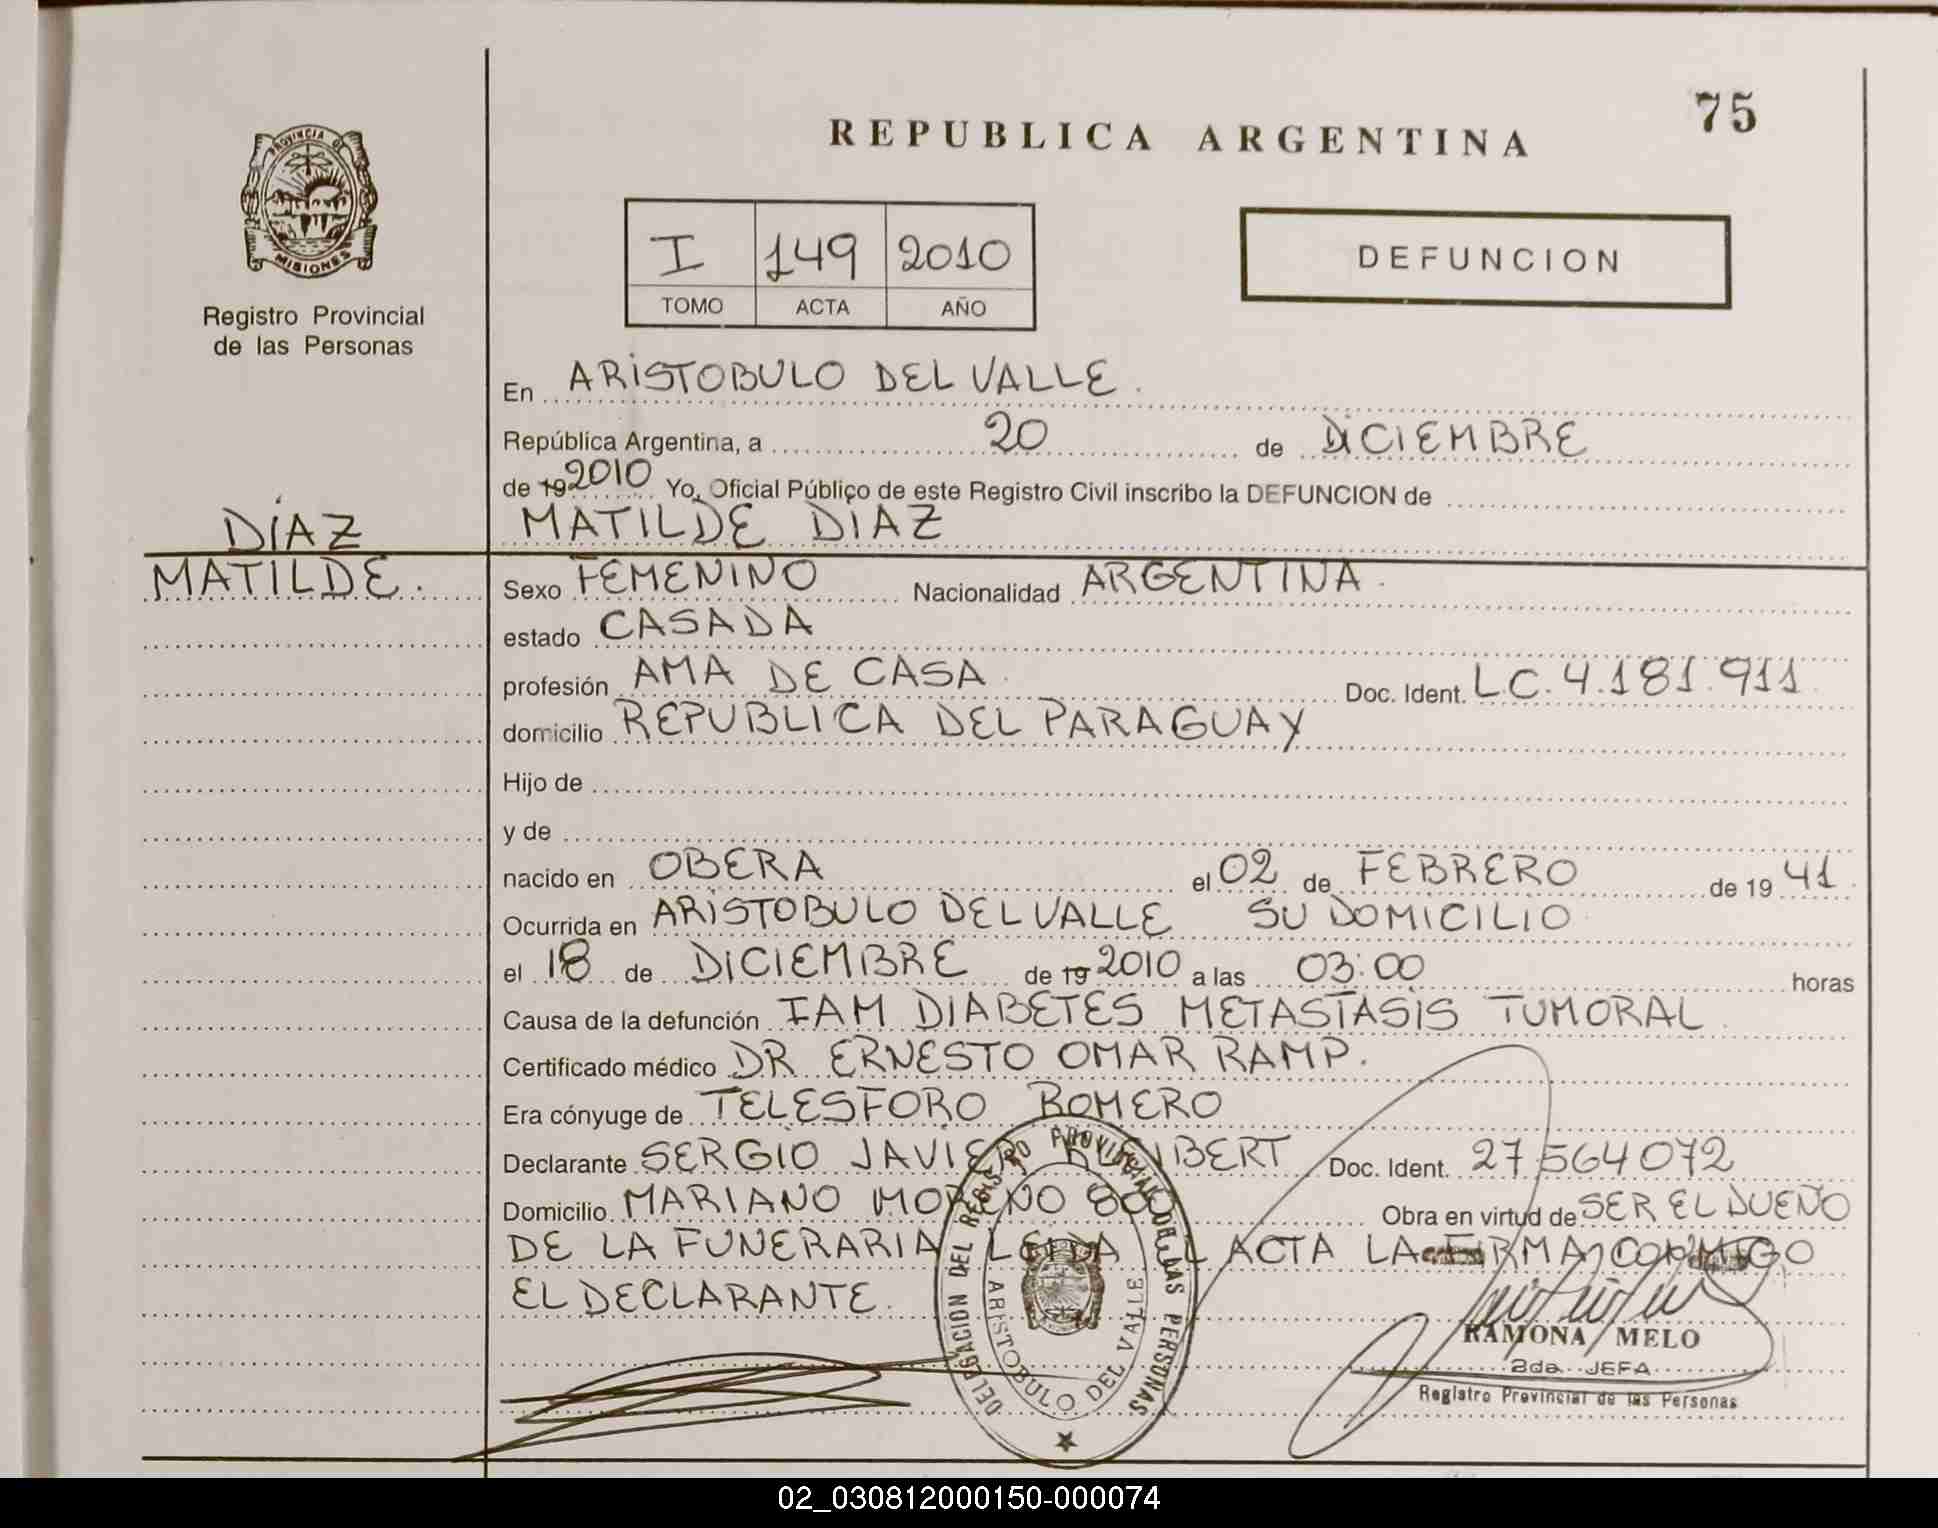 75
REPUBLICA ARGENTINA
PROVINCIA DE
MISIONES
Registro Provincial
de las Personas
I 149 2010
TOMO ACTA AÑO
DEFUNCION
En ARISTOBULO DEL VALLE.
República Argentina, a 20 de DICIEMBRE
de 19 2010 Yo, Oficial Público de este Registro Civil inscribo la DEFUNCION de
DIAZ MATILDE DIAZ
MATILDE. Sexo FEMENINO Nacionalidad ARGENTINA.
estado CASADA
profesión AMA DE CASA Doc. Ident. L.C. 4.181.911
domicilio REPUBLICA DEL PARAGUAY
Hijo de
y de
nacido en OBERA el 02 de FEBRERO de 19 41
Ocurrida en ARISTOBULO DEL VALLE SU DOMICILIO
el 18 de DICIEMBRE de 19 2010 a las 03:00 horas
Causa de la defunción IAM DIABETES METASTASIS TUMORAL
Certificado médico DR ERNESTO OMAR RAMP.
Era cónyuge de TELESFORO ROMERO
Declarante SERGIO JAVIER Doc. Ident. 27564072
Domicilio MARIANO MORENO 800 Obra en virtud de SER EL DUEÑO
DE LA FUNERARIA LEIDA EL ACTA LA FIRMA CONMIGO
EL DECLARANTE.
DELEGACION DEL REGISTRO PROVINCIAL DE LAS PERSONAS
ARISTOBULO DEL VALLE
RAMONA MELO
2da JEFA
Registro Provincial de las Personas
02_030812000150-000074